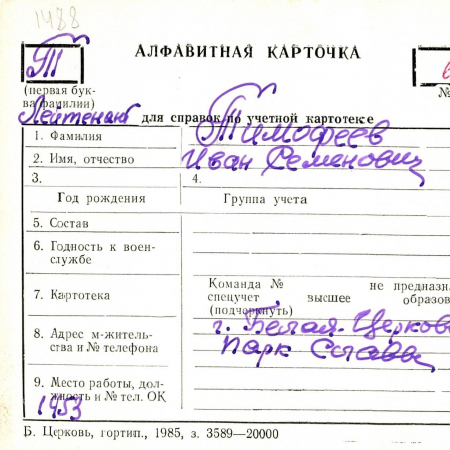 1488
АЛФАВИТНАЯ КАРТОЧКА
Т
(первая бук-
ва фамилии)
№
Лейтенант для справок по учетной картотеке
1. Фамилия Тимофеев
2. Имя, отчество Иван Семенович
3. 4.
Год рождения Группа учета
5. Состав
6. Годность к воен-
службе
7. Картотека
Команда № не предназна
спецучет, высшее образов
(подчеркнуть)
8. Адрес м-житель-
ства и № телефона
г. Белая-Церковь
Парк Слава
9. Место работы, дол-
жность и № тел. ОК
1953
Б. Церковь, гортип., 1985, з. 3589—20000